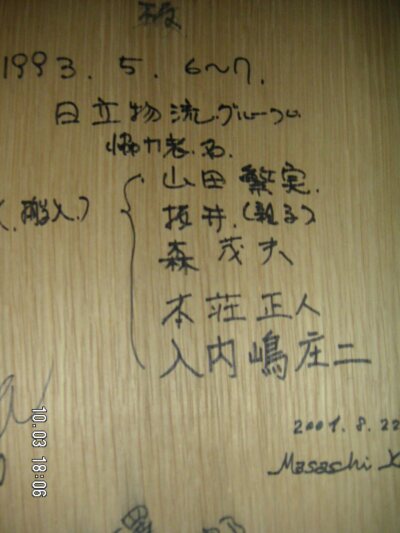 1993.5.6〜7.
日立物流グループ
協力者名
山田繁実.
(搬入)
坂井.(親子)
森茂夫
本荘正人
入内嶋庄二
2001.8.22
Masachi
10.03 18:06